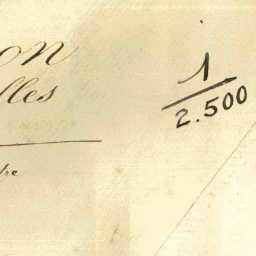 on
lles
1
2.500